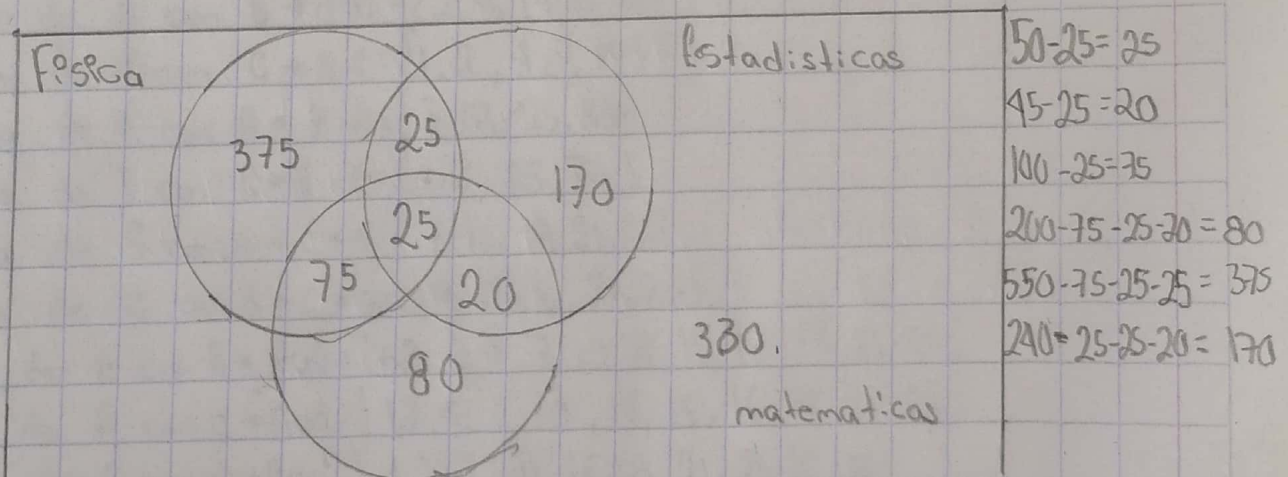 Física
Estadisticas
375
25
170
25
75
20
330.
80
matematicas
50-25=25
45-25=20
100-25=75
200-75-25-20=80
550-75-25-25=375
240-25-25-20=170